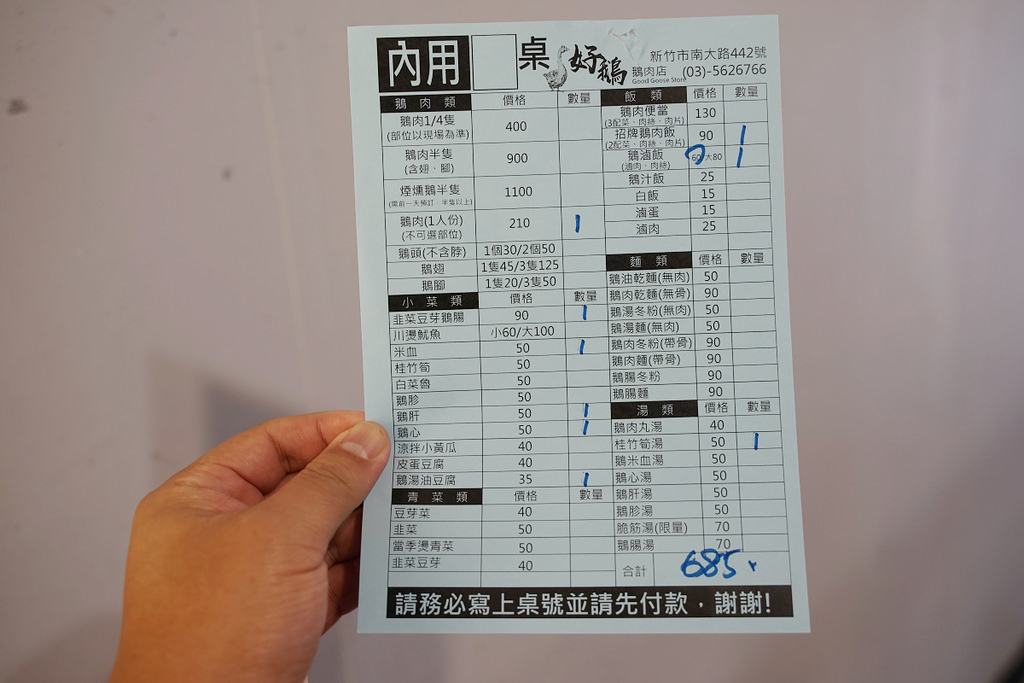 內用 桌 好鵝 鵝肉店 Good Goose Store
新竹市南大路442號
(03)-5626766
鵝肉類 價格 數量
鵝肉1/4隻 (部位以現場為準) 400
鵝肉半隻 (含翅、腳) 900
煙燻鵝半隻 (需前一天預訂，半隻以上) 1100
鵝肉(1人份) (不可選部位) 210 1
鵝頭(不含脖) 1個30/2個50
鵝翅 1隻45/3隻125
鵝腳 1隻20/3隻50
小菜類 價格 數量
韭菜豆芽鵝腸 90 1
川燙魷魚 小60/大100
米血 50 1
桂竹筍 50
白菜魯 50
鵝胗 50
鵝肝 50 1
鵝心 50 1
涼拌小黃瓜 40
皮蛋豆腐 40
鵝湯油豆腐 35 1
青菜類 價格 數量
豆芽菜 40
韭菜 50
當季燙青菜 50
韭菜豆芽 40
飯類 價格 數量
鵝肉便當 (3配菜、肉絲、肉片) 130
招牌鵝肉飯 (2配菜、肉絲、肉片) 90 1
鵝滷飯 (滷肉、肉絲) 60/大80 1
鵝汁飯 25
白飯 15
滷蛋 15
滷肉 25
麵類 價格 數量
鵝油乾麵(無肉) 50
鵝肉乾麵(無骨) 90
鵝湯冬粉(無肉) 50
鵝湯麵(無肉) 50
鵝肉冬粉(帶骨) 90
鵝肉麵(帶骨) 90
鵝腸冬粉 90
鵝腸麵 90
湯類 價格 數量
鵝肉丸湯 40
桂竹筍湯 50 1
鵝米血湯 50
鵝心湯 50
鵝肝湯 50
鵝胗湯 50
脆筋湯(限量) 70
鵝腸湯 70
合計 685
請務必寫上桌號並請先付款，謝謝!